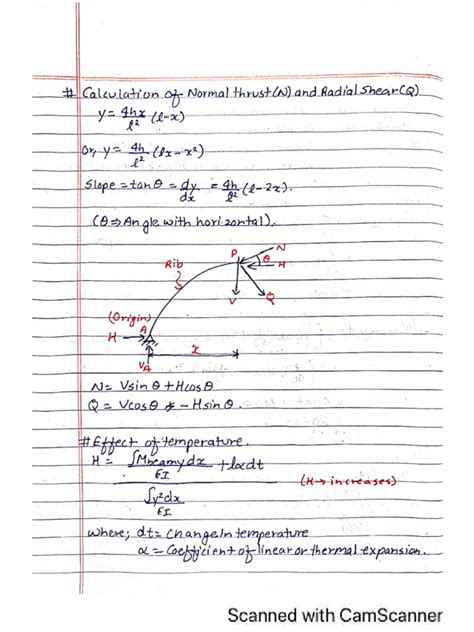 # Calculation of Normal thrust (N) and Radial Shear (Q)
y = 4hx/l² (l-x)
Or, y = 4h/l² (lx - x²)
Slope = tanθ = dy/dx = 4h/l² (l-2x).
(θ ⇒ Angle with horizontal).
P
N
θ
H
Rib
V
Q
(Origin)
A
H
x
VA
N = Vsinθ + Hcosθ
Q = Vcosθ - Hsinθ.
# Effect of temperature.
H = ∫Mbeam y dx/EI + lαdt
∫y²dx/EI
(H → increases)
where; dt = Change in temperature
α = Coefficient of linear or thermal expansion.
Scanned with CamScanner